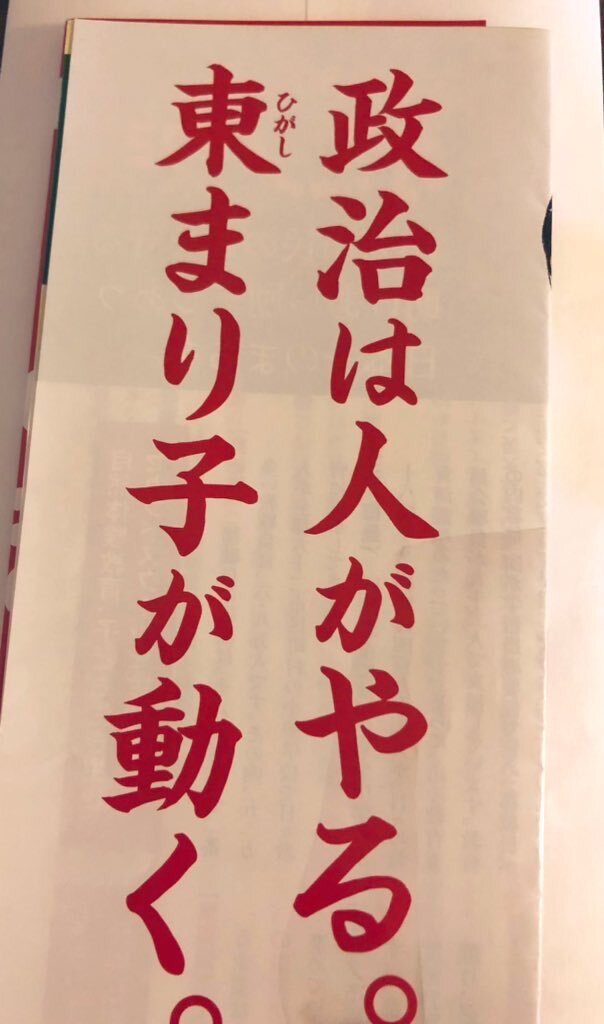 政治は人がやる。
東まり子が動く。
ひがし